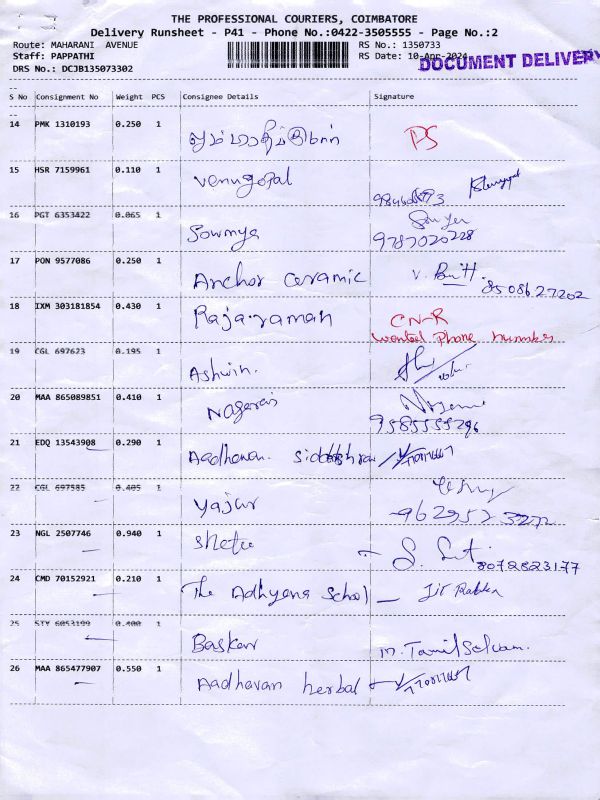 THE PROFESSIONAL COURIERS, COIMBATORE
Delivery Runsheet - P41 - Phone No.:0422-3505555 - Page No.:2
Route: MAHARANI AVENUE RS No.: 1350733
Staff: PAPPATHI RS Date: 10-Apr-2024
DRS No.: DCJB135073302
DOCUMENT DELIVERY
S No Consignment No Weight PCS Consignee Details Signature
14 PMK 1310193 0.250 1
PS
15 HSR 7159961 0.110 1
Venugopal
16 PGT 6353422 0.065 1
Sowmya 9787020228
17 PON 9577086 0.250 1
Anchor Ceramic 8508627202
18 IXM 303181854 0.430 1
Raja.raman CN-R
wanted phone number
19 CGL 697623 0.195 1
Ashwin.
20 MAA 865089851 0.410 1
Nageraj 9585555296
21 EDQ 13543908 0.290 1
Aadhavan.
22 CGL 697585 0.405 1
Yajur
23 NGL 2507746 0.940 1
8072823177
24 CMD 70152921 0.210 1
The Adhyena School
25 STY 6053199 0.400 1
Basker m. Tamil Selvam.
26 MAA 865477907 0.550 1
Aadhavan herbal